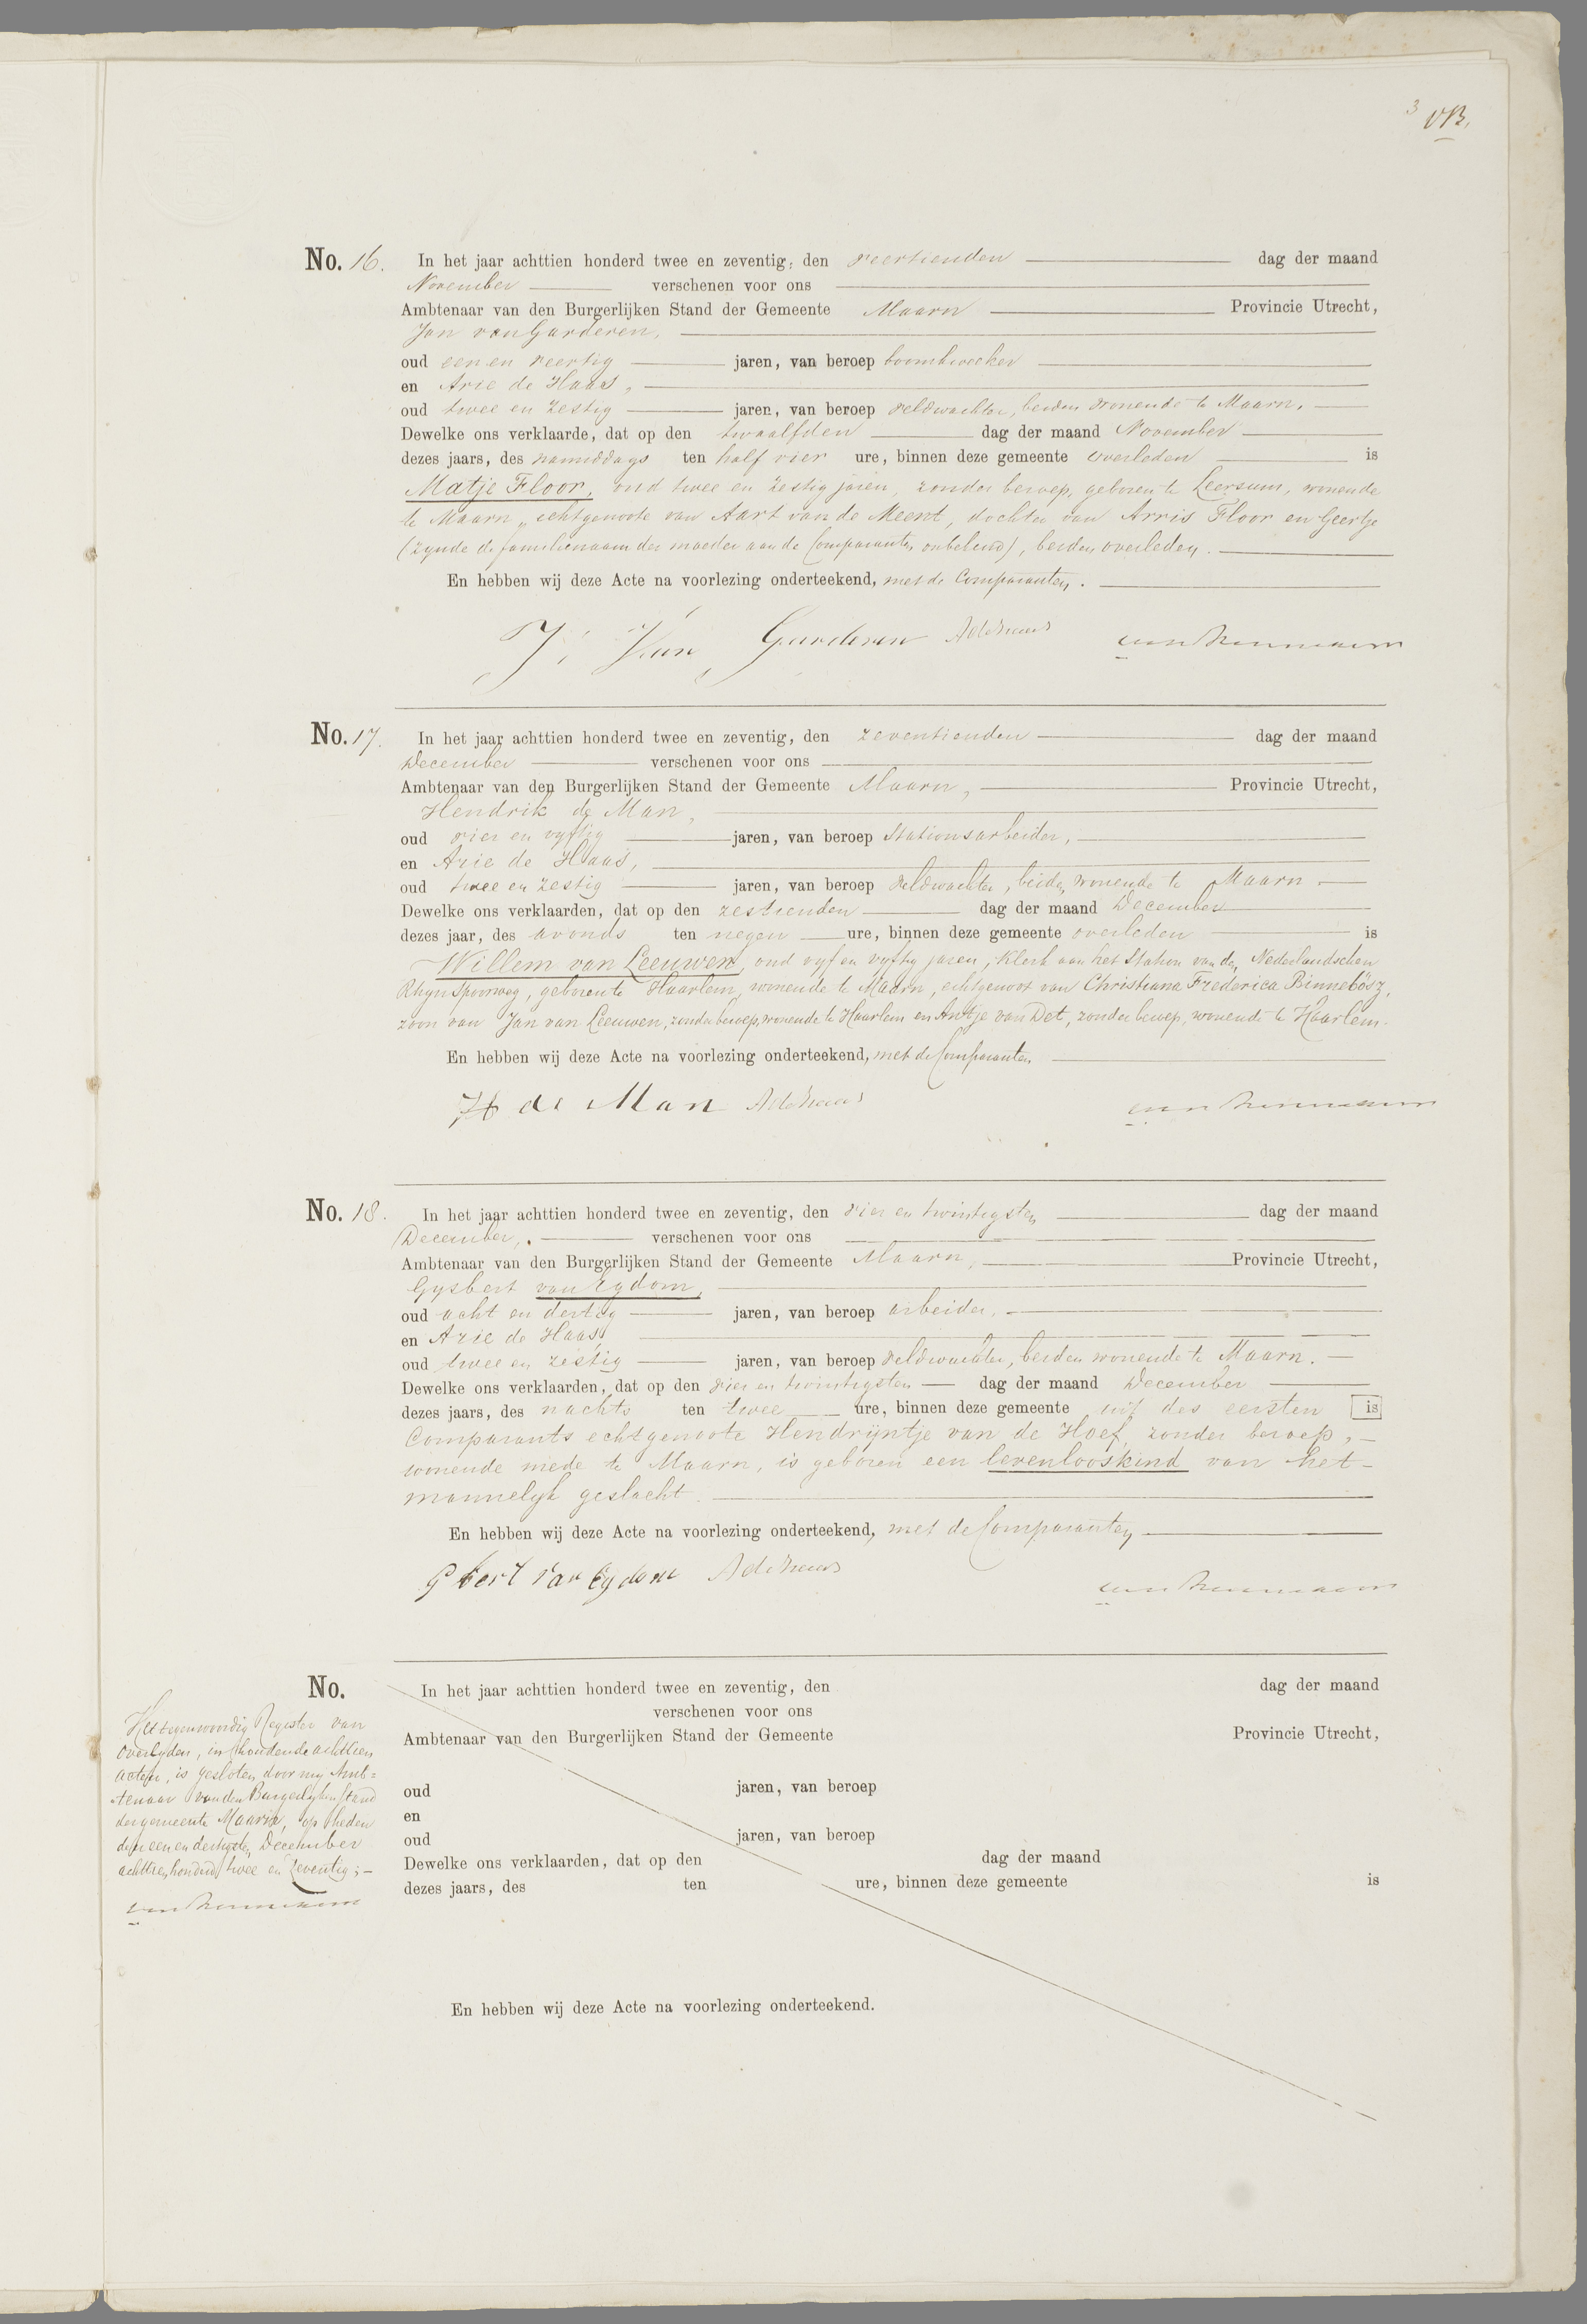 3 VB.
No. 16. In het jaar achttien honderd twee en zeventig, den veertienden dag der maand
November verschenen voor ons
Ambtenaar van den Burgerlijken Stand der Gemeente Maarn Provincie Utrecht,
Jan van Garderen,
oud een en veertig jaren, van beroep boomkweeker
en Arie de Haas,
oud twee en zestig jaren, van beroep veldwachter, beiden wonende te Maarn.
Dewelke ons verklaarde, dat op den twaalfden dag der maand November
dezes jaars, des namiddags ten half vier ure, binnen deze gemeente overleden is
Matje Floor, oud twee en zestig jaren, zonder beroep, geboren te Leersum, wonende
te Maarn, echtgenoote van Aart van de Meent, dochter van Arris Floor en Geertje
(zynde de familienaam der moeder aan de Comparanten onbekend), beiden overleden.
En hebben wij deze Acte na voorlezing onderteekend, met de Comparanten.
J. Van Garderen A de Haas
No. 17. In het jaar achttien honderd twee en zeventig, den zeventienden dag der maand
December verschenen voor ons
Ambtenaar van den Burgerlijken Stand der Gemeente Maarn, Provincie Utrecht,
Hendrik de Man,
oud vier en vyftig jaren, van beroep Stationsarbeider,
en Arie de Haas,
oud twee en zestig jaren, van beroep veldwachter, beiden wonende te Maarn.
Dewelke ons verklaarden, dat op den zestienden dag der maand December
dezes jaar, des avonds ten negen ure, binnen deze gemeente overleden is
Willem van Leeuwen, oud vyf en vyftig jaren, Klerk aan het Station van den Nederlandschen
Rhynspoorweg, geboren te Haarlem, wonende te Maarn, echtgenoot van Christiana Frederica Binnebösz,
zoon van Jan van Leeuwen, zonder beroep, wonende te Haarlem en Antje van Det, zonder beroep, wonende te Haarlem.
En hebben wij deze Acte na voorlezing onderteekend, met de Comparanten.
H de Man A de Haas
No. 18. In het jaar achttien honderd twee en zeventig, den vier en twintigsten dag der maand
December, verschenen voor ons
Ambtenaar van den Burgerlijken Stand der Gemeente Maarn, Provincie Utrecht,
Gysbert van Eydom,
oud acht en dertig jaren, van beroep arbeider,
en Arie de Haas,
oud twee en zestig jaren, van beroep veldwachter, beiden wonende te Maarn.
Dewelke ons verklaarden, dat op den vier en twintigsten dag der maand December
dezes jaars, des nachts ten twee ure, binnen deze gemeente uit des eersten is
Comparants echtgenoote Hendrijntje van de Hoef, zonder beroep,
wonende mede te Maarn, is geboren een levenlooskind van het
mannelyk geslacht.
En hebben wij deze Acte na voorlezing onderteekend, met de Comparanten
G bert van Eydom A de Haas
No. In het jaar achttien honderd twee en zeventig, den dag der maand
verschenen voor ons
Ambtenaar van den Burgerlijken Stand der Gemeente Provincie Utrecht,
oud jaren, van beroep
en
oud jaren, van beroep
Dewelke ons verklaarden, dat op den dag der maand
dezes jaars, des ten ure, binnen deze gemeente is
En hebben wij deze Acte na voorlezing onderteekend.
Het tegenwoordig Register van
Overlyden, inhoudende achttien
acten, is gesloten door my Amb=
tenaar van den Burgerlyken Stand
der gemeente Maarn, op heden
den een en dertigsten December
achttien honderd twee en zeventig;